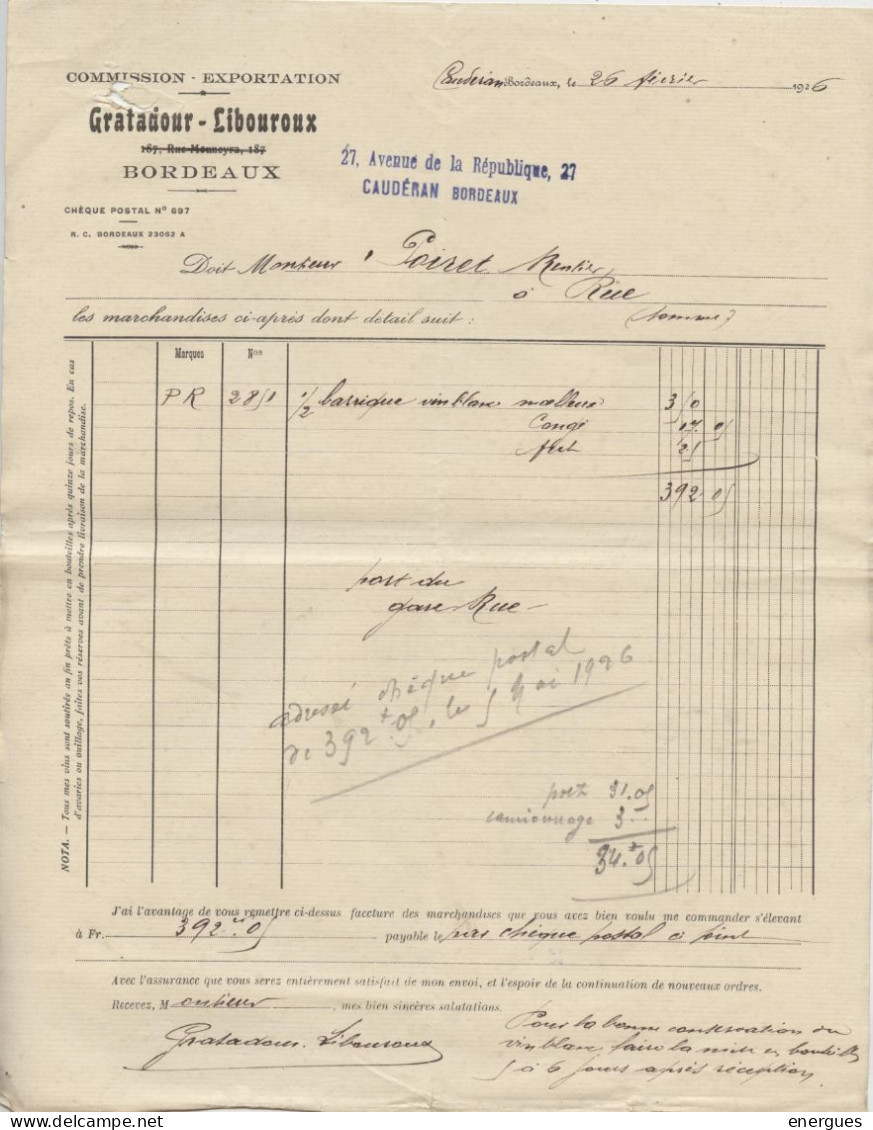 COMMISSION - EXPORTATION
Gratadour - Libouroux
187, Rue Mouneyra, 187
BORDEAUX
CHÈQUE POSTAL Nº 697
R. C. BORDEAUX 23062 A
Cauderan Bordeaux, le 26 février 1926
27, Avenue de la République, 27
CAUDÉRAN BORDEAUX
Doit Monsieur Poiret Rentier
à Rue
les marchandises ci-après dont détail suit : (Somme)
Marques Nos
PR 2851 1/2 barrique vin blanc moelleux 350
Congé 17. 05
fût 25
392. 05
port du
gare Rue
adressé chèque postal
de 392 f 05, le 5 Mai 1926
port 31.05
camionnage 3 --
34 f 05
NOTA. — Tous mes vins sont soutirés au fin prêts à mettre en bouteilles après quinze jours de repos. En cas
d'avaries ou ouillage, faites vos réserves avant de prendre livraison de la marchandise.
J'ai l'avantage de vous remettre ci-dessus facture des marchandises que vous avez bien voulu me commander s'élevant
à Fr. 392.05 payable le par chèque postal ci joint
Avec l'assurance que vous serez entièrement satisfait de mon envoi, et l'espoir de la continuation de nouveaux ordres.
Recevez, Monsieur, mes bien sincères salutations.
Gratadour. Libouroux
Pour la bonne conservation du
vin blanc faire la mise en bouteilles
5 à 6 jours après réception
energues